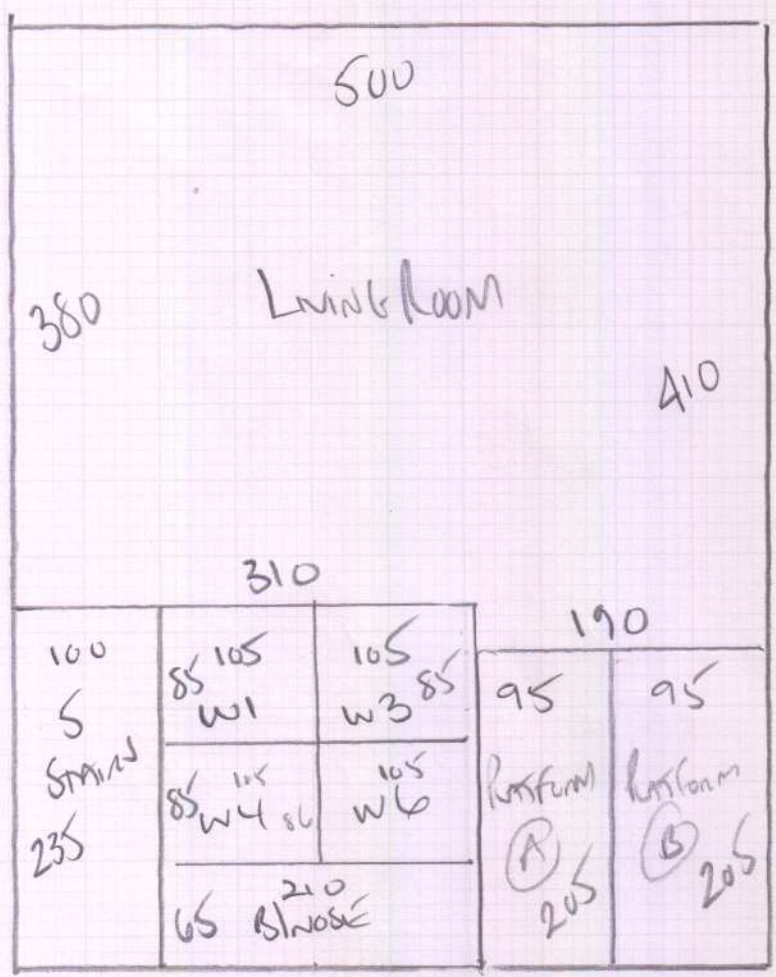 500
LIVING ROOM
380
410
310
190
100
5
STAIRS
235
85 105
W1
105
W3 85
85 105
W4 86
105
W6
210
65 B/NOSE
95
PLATFORM
A
205
95
PLATFORM
B
205